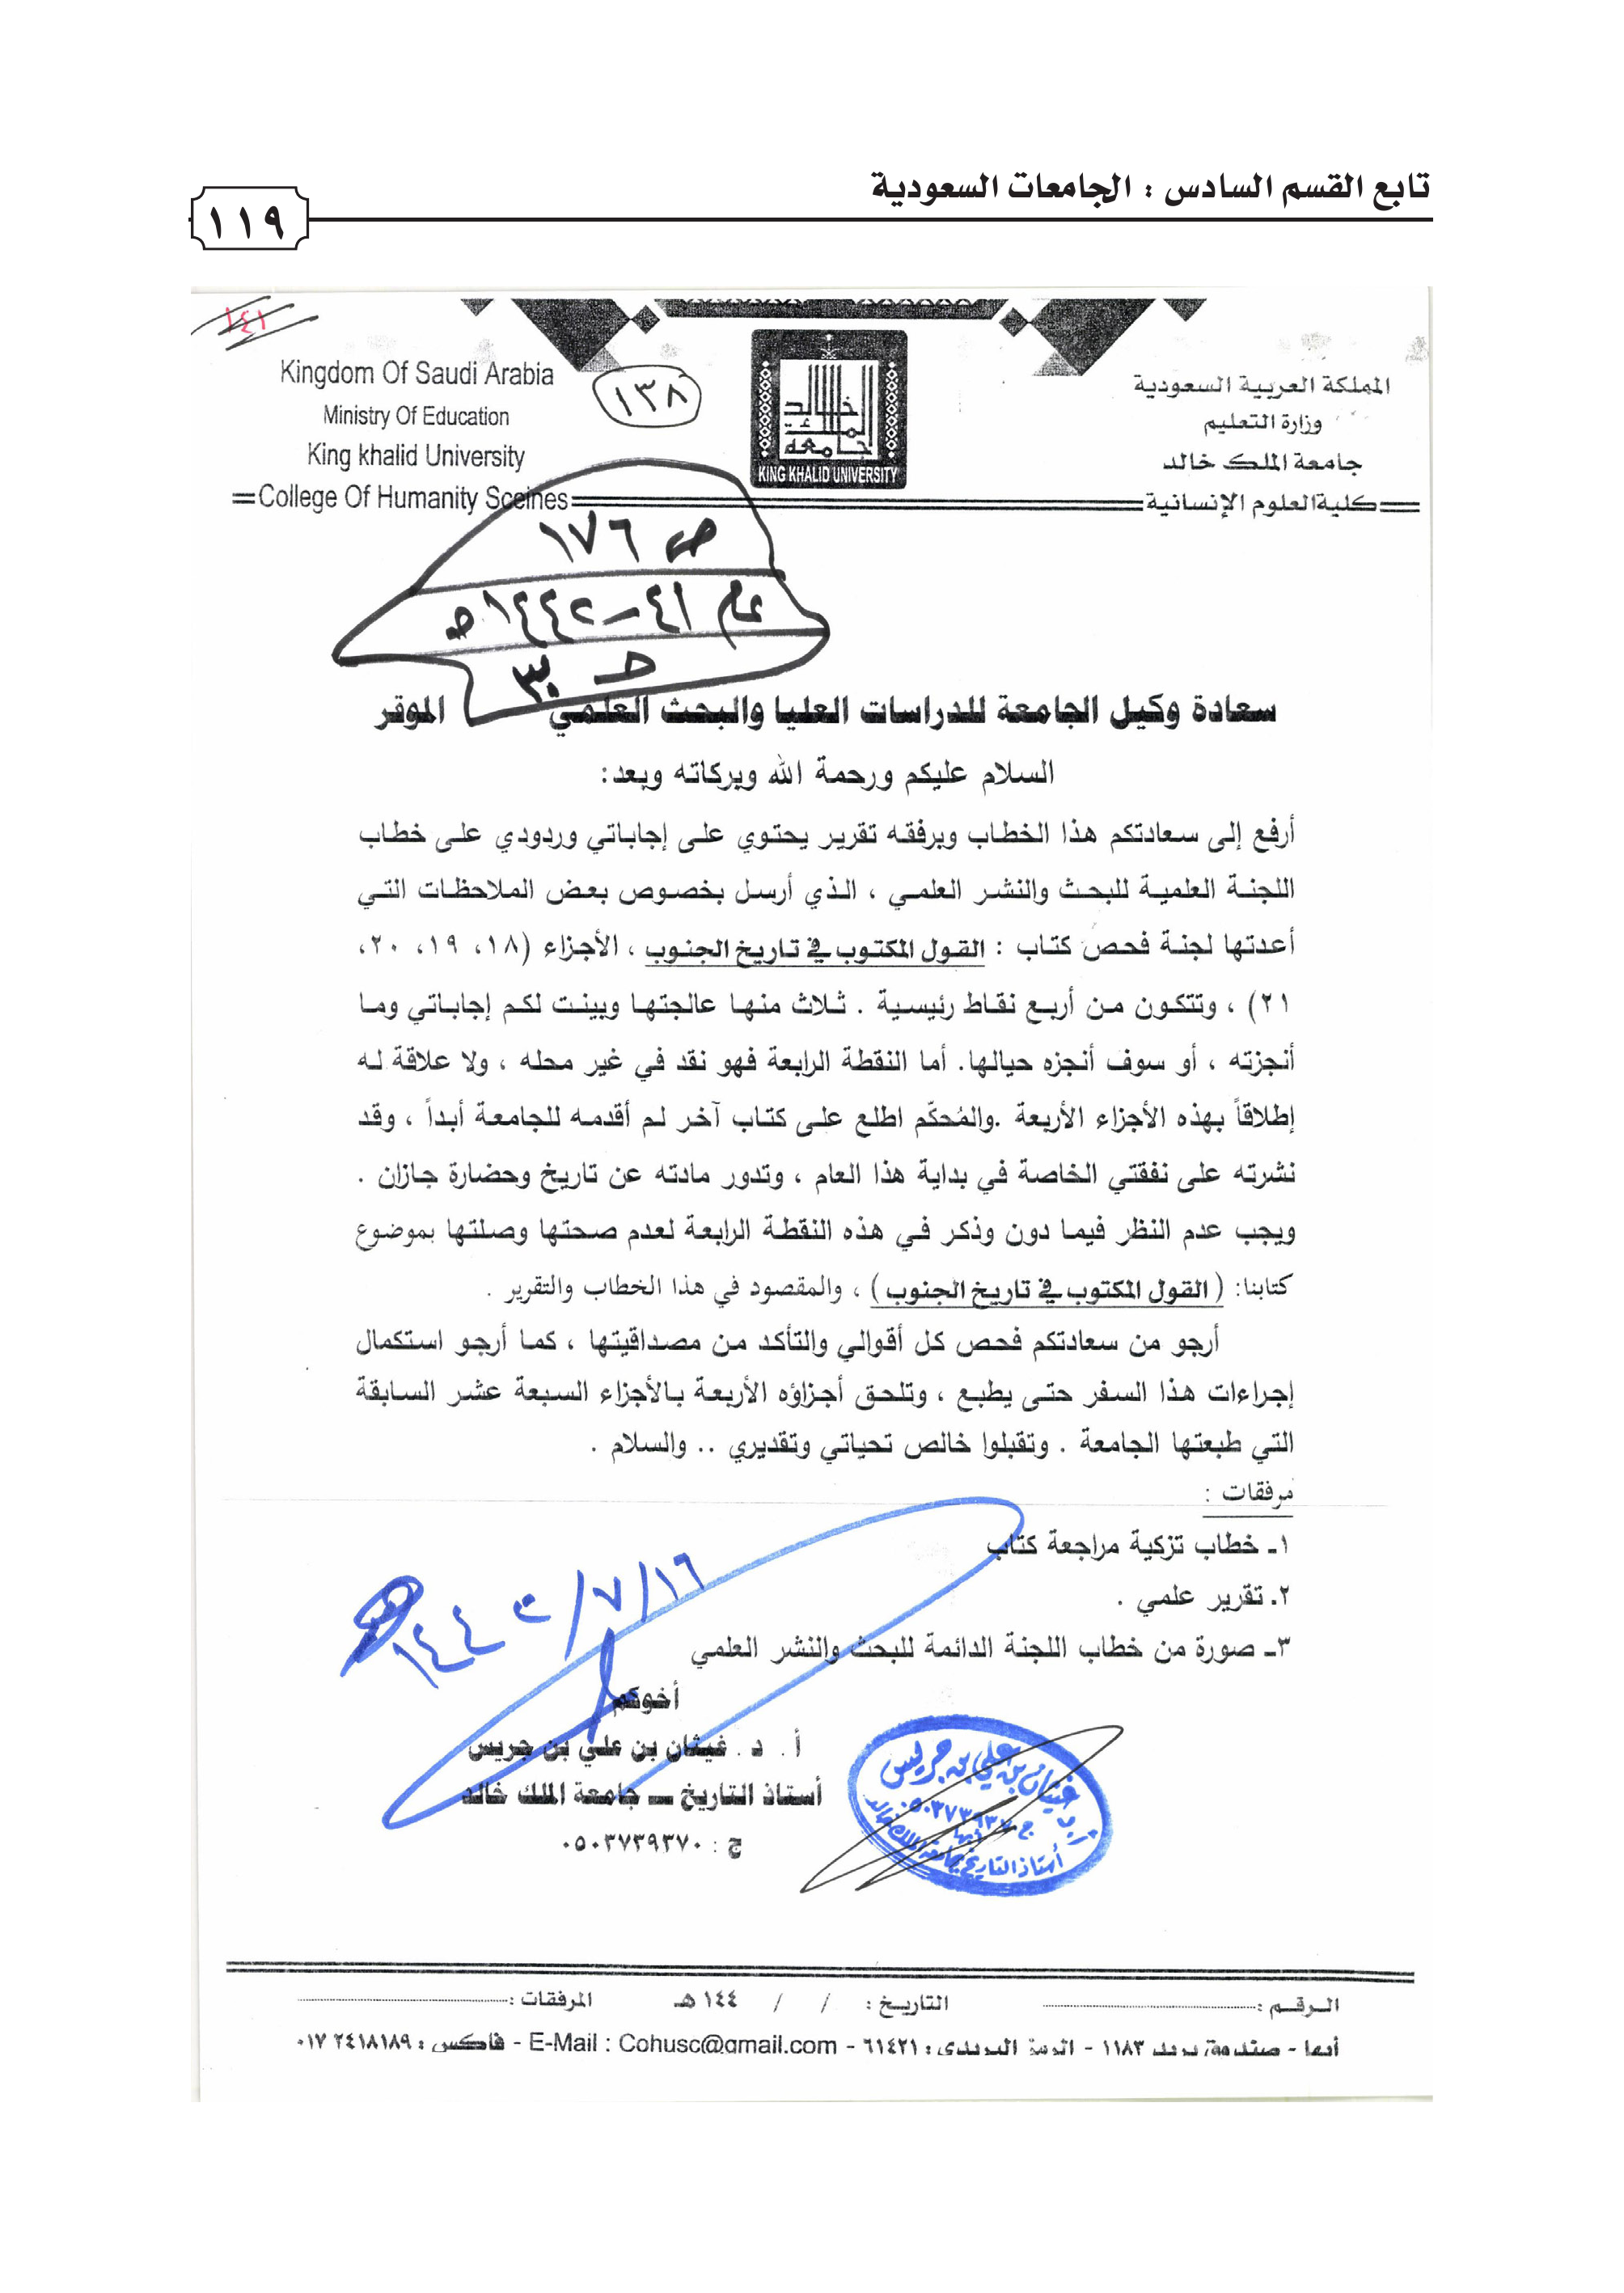 تابع القسم السادس : الجامعات السعودية
١١٩
١٤١
Kingdom Of Saudi Arabia
Ministry Of Education
King khalid University
College Of Humanity Sceines
١٣٨
جامعة الملك خالد
KING KHALID UNIVERSITY
المملكة العربية السعودية
وزارة التعليم
جامعة الملك خالد
كلية العلوم الإنسانية
ص ١٧٦
عام ٤١–١٤٤٢هـ
سعادة وكيل الجامعة للدراسات العليا والبحث العلمي الموقر
السلام عليكم ورحمة الله وبركاته وبعد:
أرفع إلى سعادتكم هذا الخطاب وبرفقه تقرير يحتوي على إجاباتي وردودي على خطاب
اللجنة العلمية للبحث والنشر العلمي ، الذي أرسل بخصوص بعض الملاحظات التي
أعدتها لجنة فحص كتاب : القول المكتوب في تاريخ الجنوب ، الأجزاء (١٨، ١٩، ٢٠،
٢١) ، وتتكون من أربع نقاط رئيسية . ثلاث منها عالجتها وبينت لكم إجاباتي وما
أنجزته ، أو سوف أنجزه حيالها. أما النقطة الرابعة فهو نقد في غير محله ، ولا علاقة له
إطلاقاً بهذه الأجزاء الأربعة .والمُحكّم اطلع على كتاب آخر لم أقدمه للجامعة أبداً ، وقد
نشرته على نفقتي الخاصة في بداية هذا العام ، وتدور مادته عن تاريخ وحضارة جازان .
ويجب عدم النظر فيما دون وذكر في هذه النقطة الرابعة لعدم صحتها وصلتها بموضوع
كتابنا: (القول المكتوب في تاريخ الجنوب) ، والمقصود في هذا الخطاب والتقرير .
أرجو من سعادتكم فحص كل أقوالي والتأكد من مصداقيتها ، كما أرجو استكمال
إجراءات هذا السفر حتى يطبع ، وتلحق أجزاؤه الأربعة بالأجزاء السبعة عشر السابقة
التي طبعتها الجامعة . وتقبلوا خالص تحياتي وتقديري .. والسلام .
مرفقات :
١ـ خطاب تزكية مراجعة كتاب
٢. تقرير علمي .
٣ـ صورة من خطاب اللجنة الدائمة للبحث والنشر العلمي
١٦/٧/١٤٤٣هـ
أخوكم
أ. د. غيثان بن علي بن جريس
أستاذ التاريخ ـ جامعة الملك خالد
ج : ٠٥٠٣٧٣٩٣٧٠
أ.د غيثان بن علي بن جريس
ج ٠٥٠٣٧٣٩٣٧٠
أبها
أستاذ التاريخ بجامعة الملك خالد
الرقم : التاريخ : / / ١٤٤هـ المرفقات :
أبها - صندوق بريد ١١٨٣ - الرمز البريدي : ٦١٤٢١ - E-Mail : Cohusc@gmail.com - فاكس : ٠١٧ ٢٤١٨١٨٩